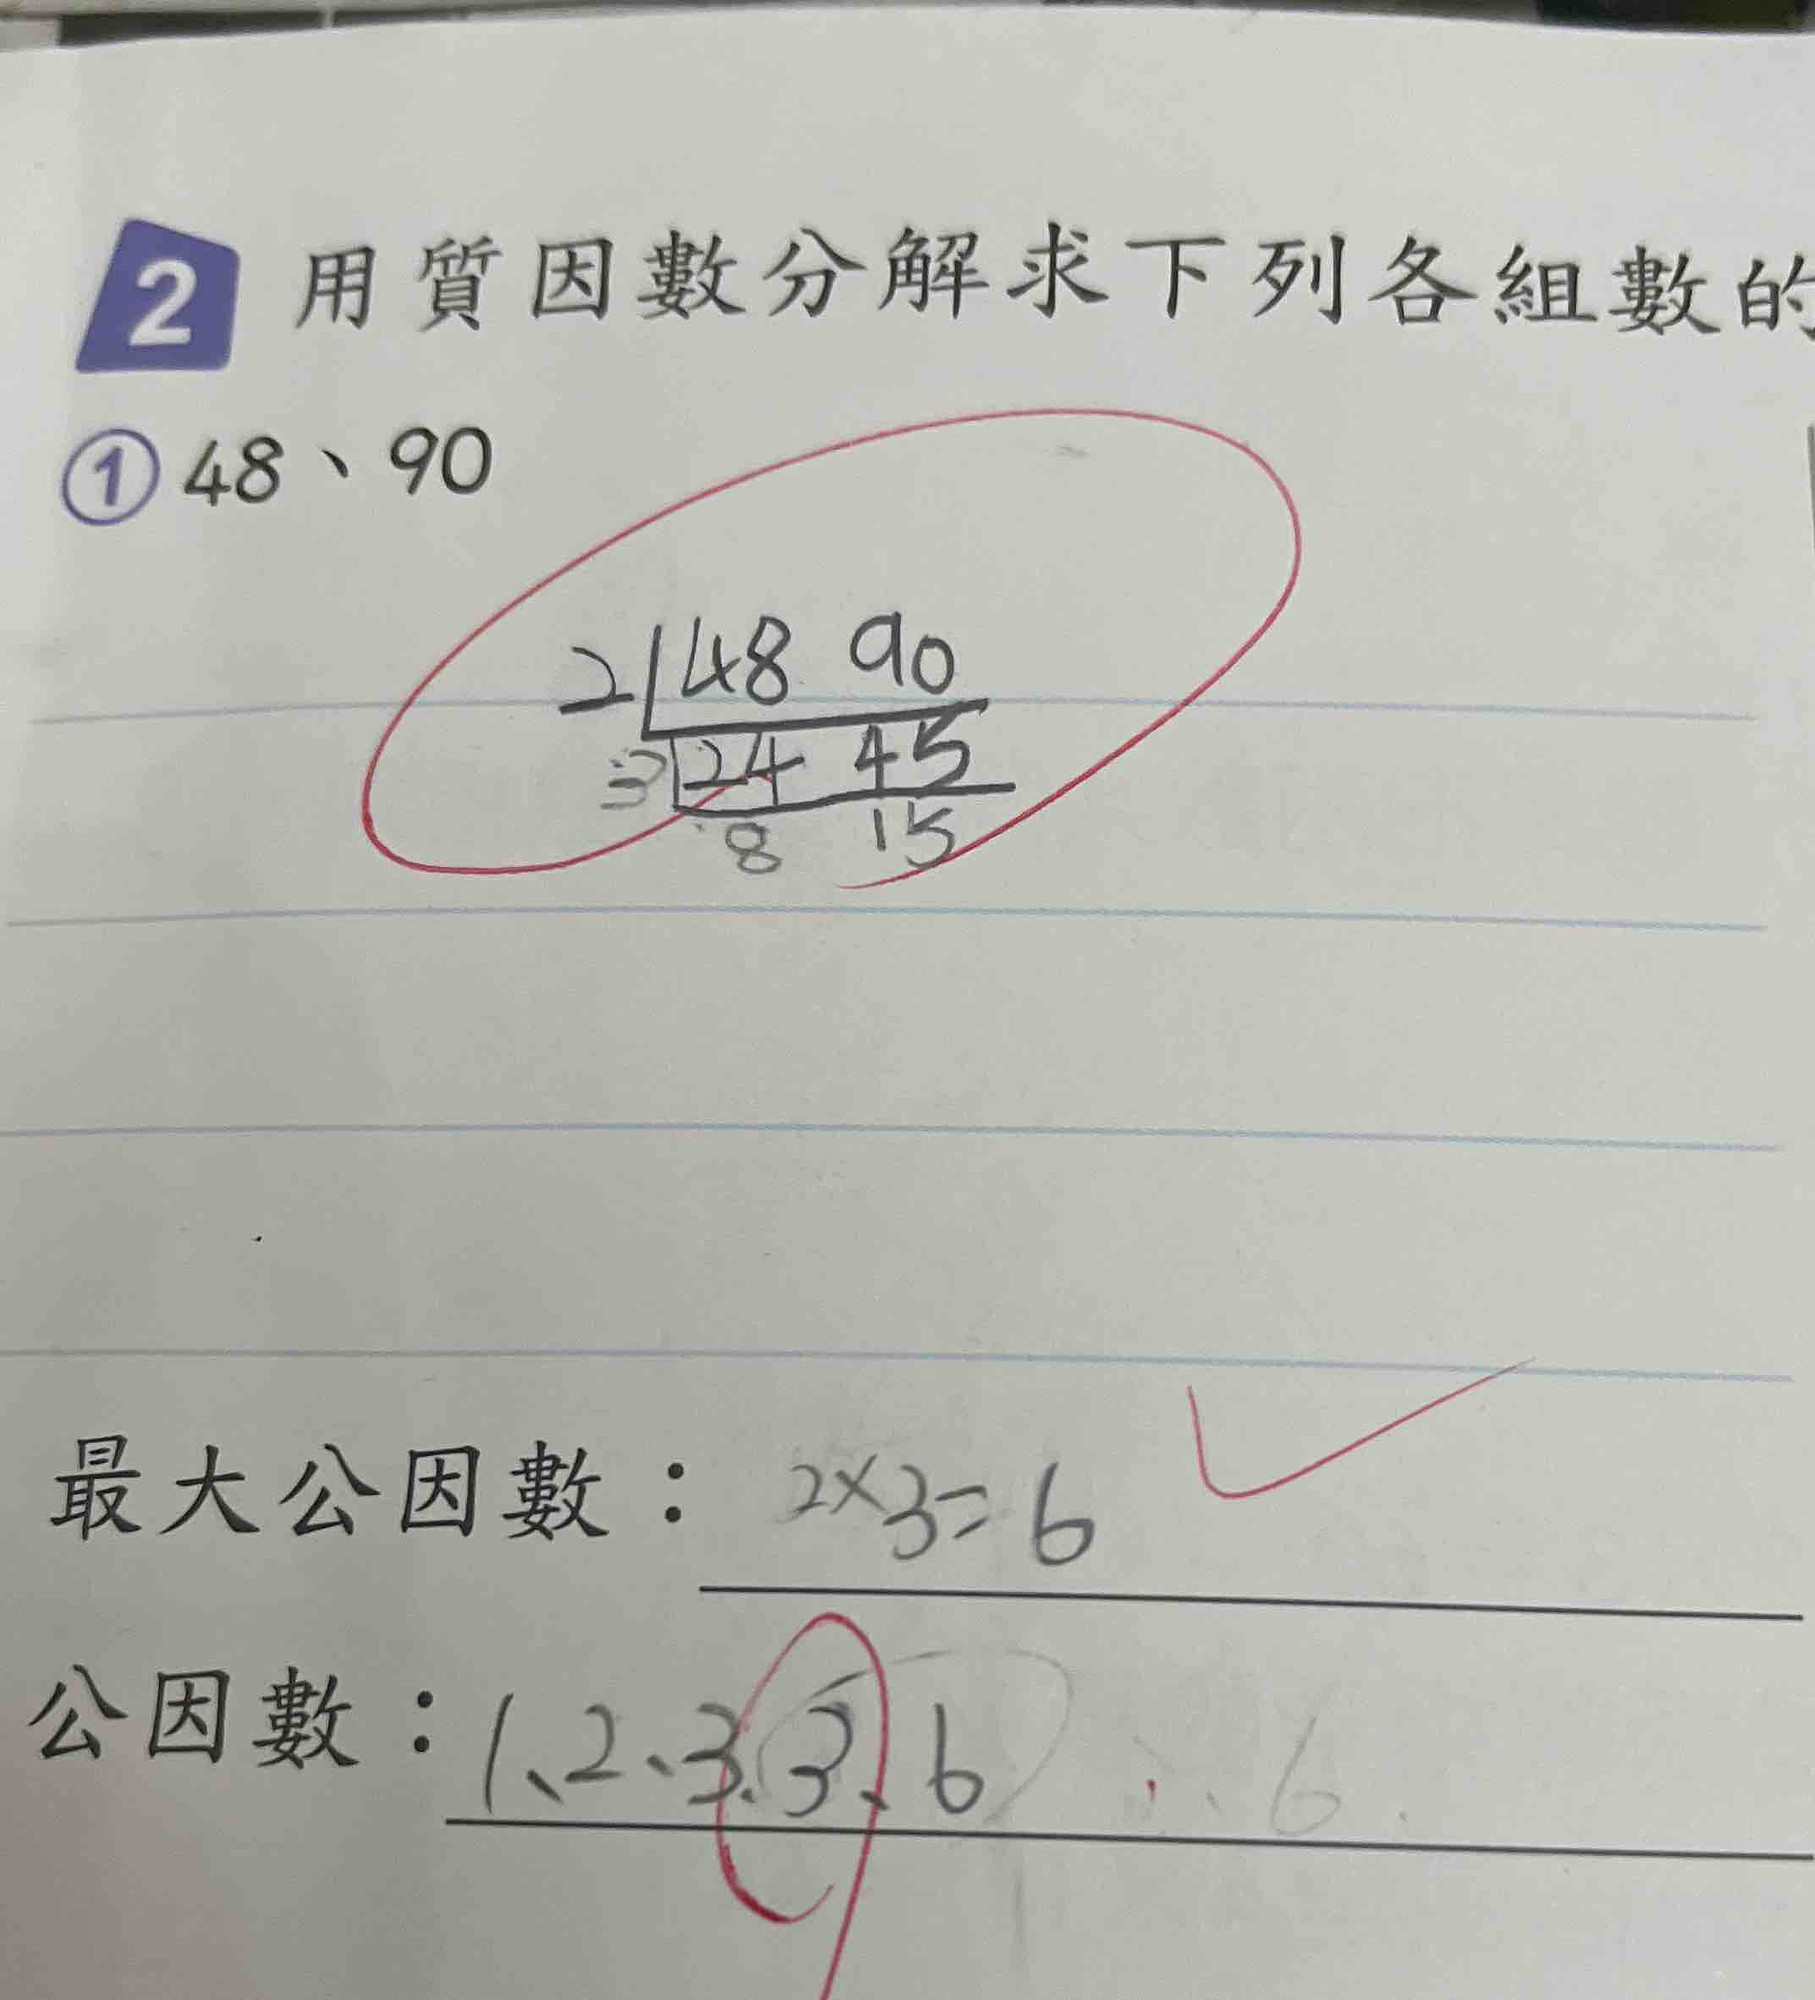 2 用質因數分解求下列各組數的
① 48、90
2 48 90
3 24 45
8 15
最大公因數：2×3=6
公因數：1、2、3、3、6